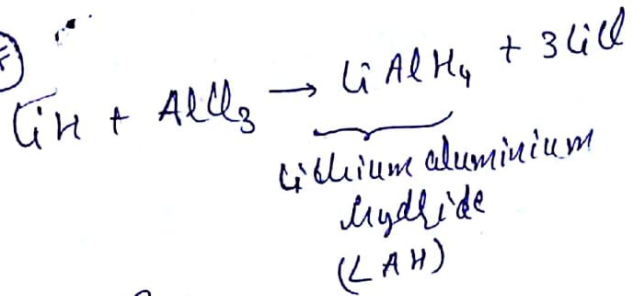 LiH + AlCl₃ → LiAlH₄ + 3LiCl
Lithium aluminium
hydride
(LAH)